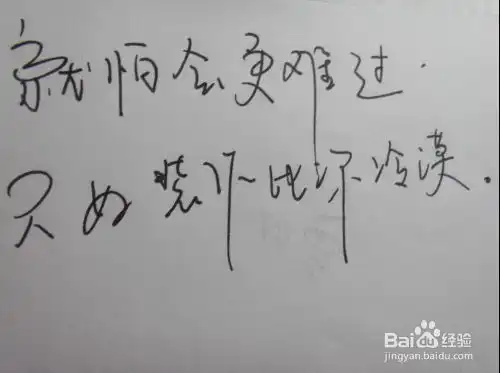 就怕会更难过.
只好装作比你冷漠.
Baidu经验
jingyan.baidu.com